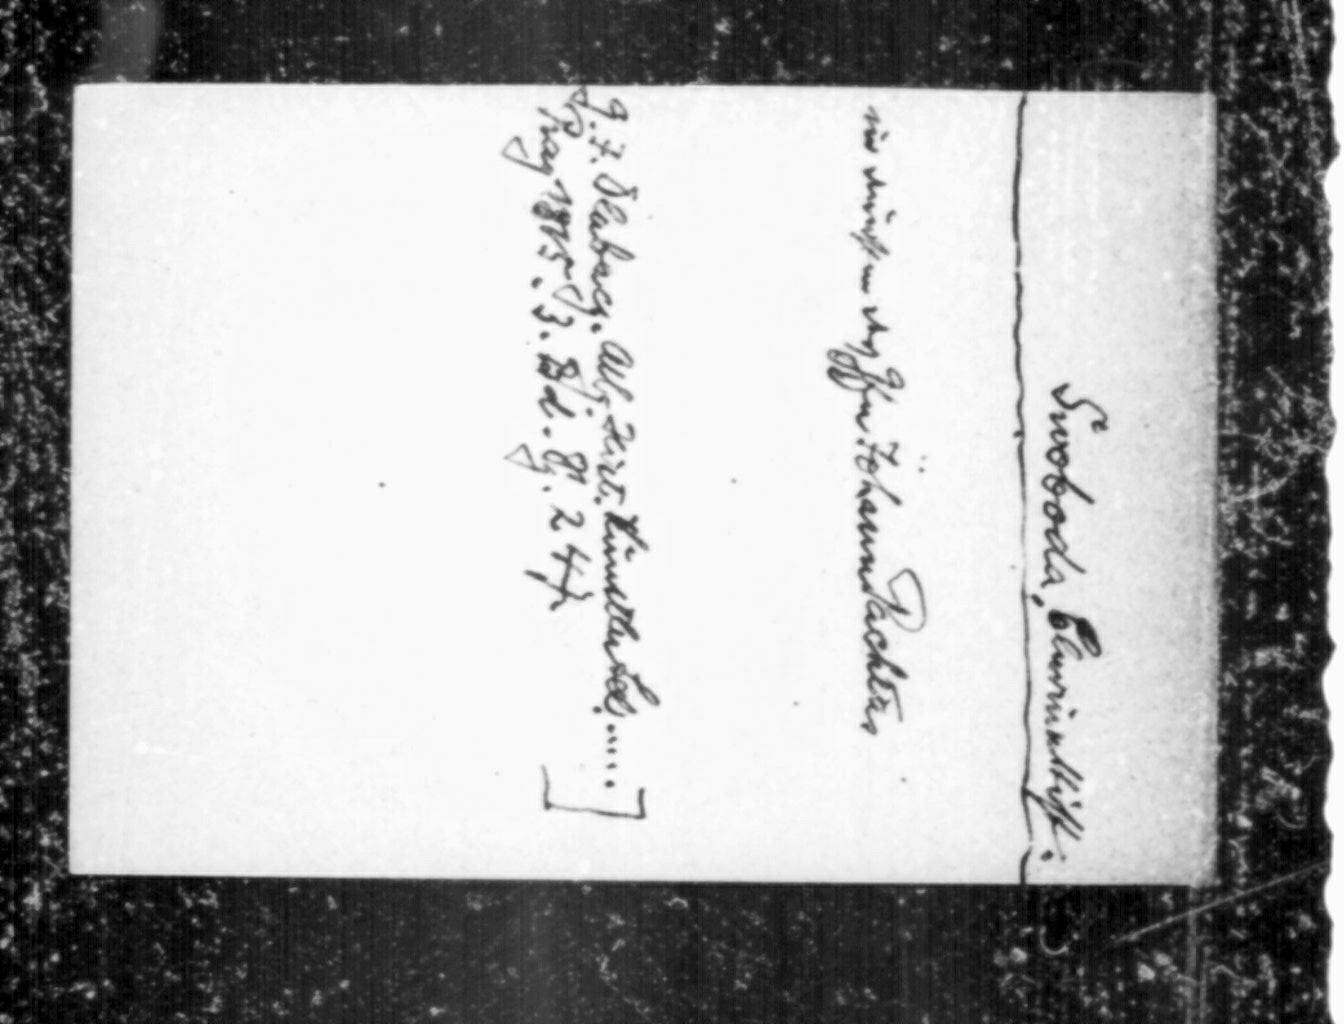 Swoboda, Clarinettist.
in Johann Pachtas
G. J. Dlabacz. Allg. hist. Künstlerlex.....
Prag 1815. 3. Bd. Sp. 244]